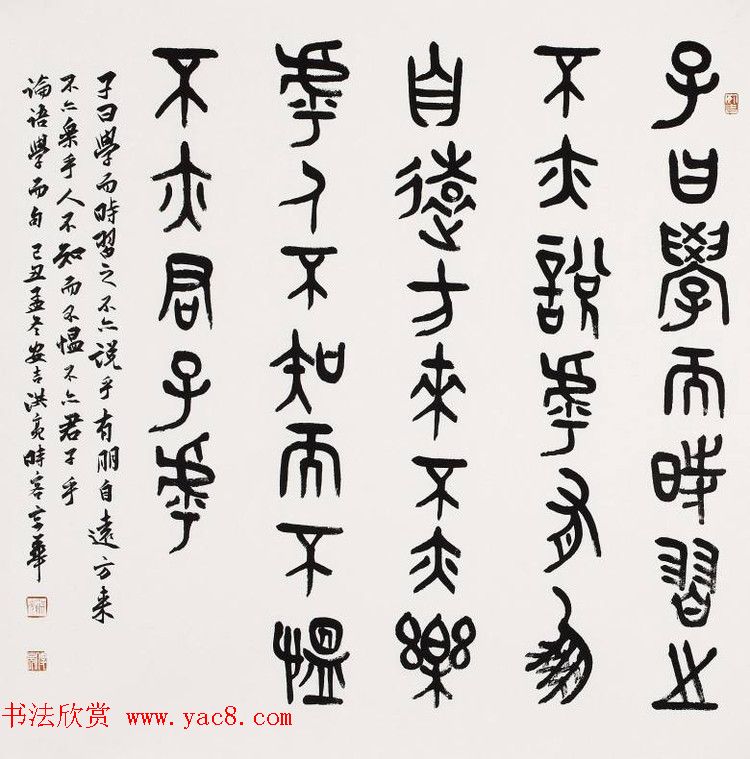 子曰學而時習之
不亦說乎有朋
自遠方來不亦樂
乎人不知而不慍
不亦君子乎
子曰學而時習之不亦説乎有朋自遠方来
不亦樂乎人不知而不愠不亦君子乎
論语學而句己丑孟冬安吉洪亮時客京華
书法欣赏 www.yac8.com